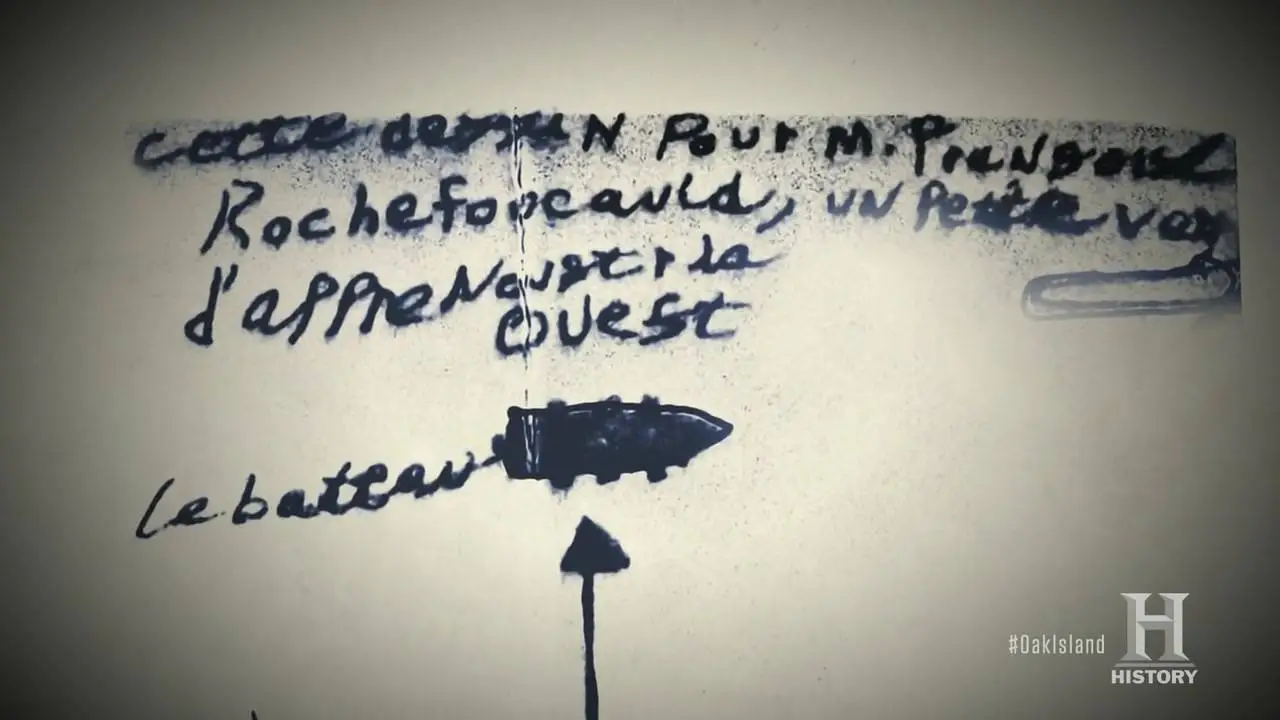 cette dessin Pour M.
Rochefoucauld, un Petite
d'appre Noustr la
OUEST
Le batteau
#OakIsland
H
HISTORY